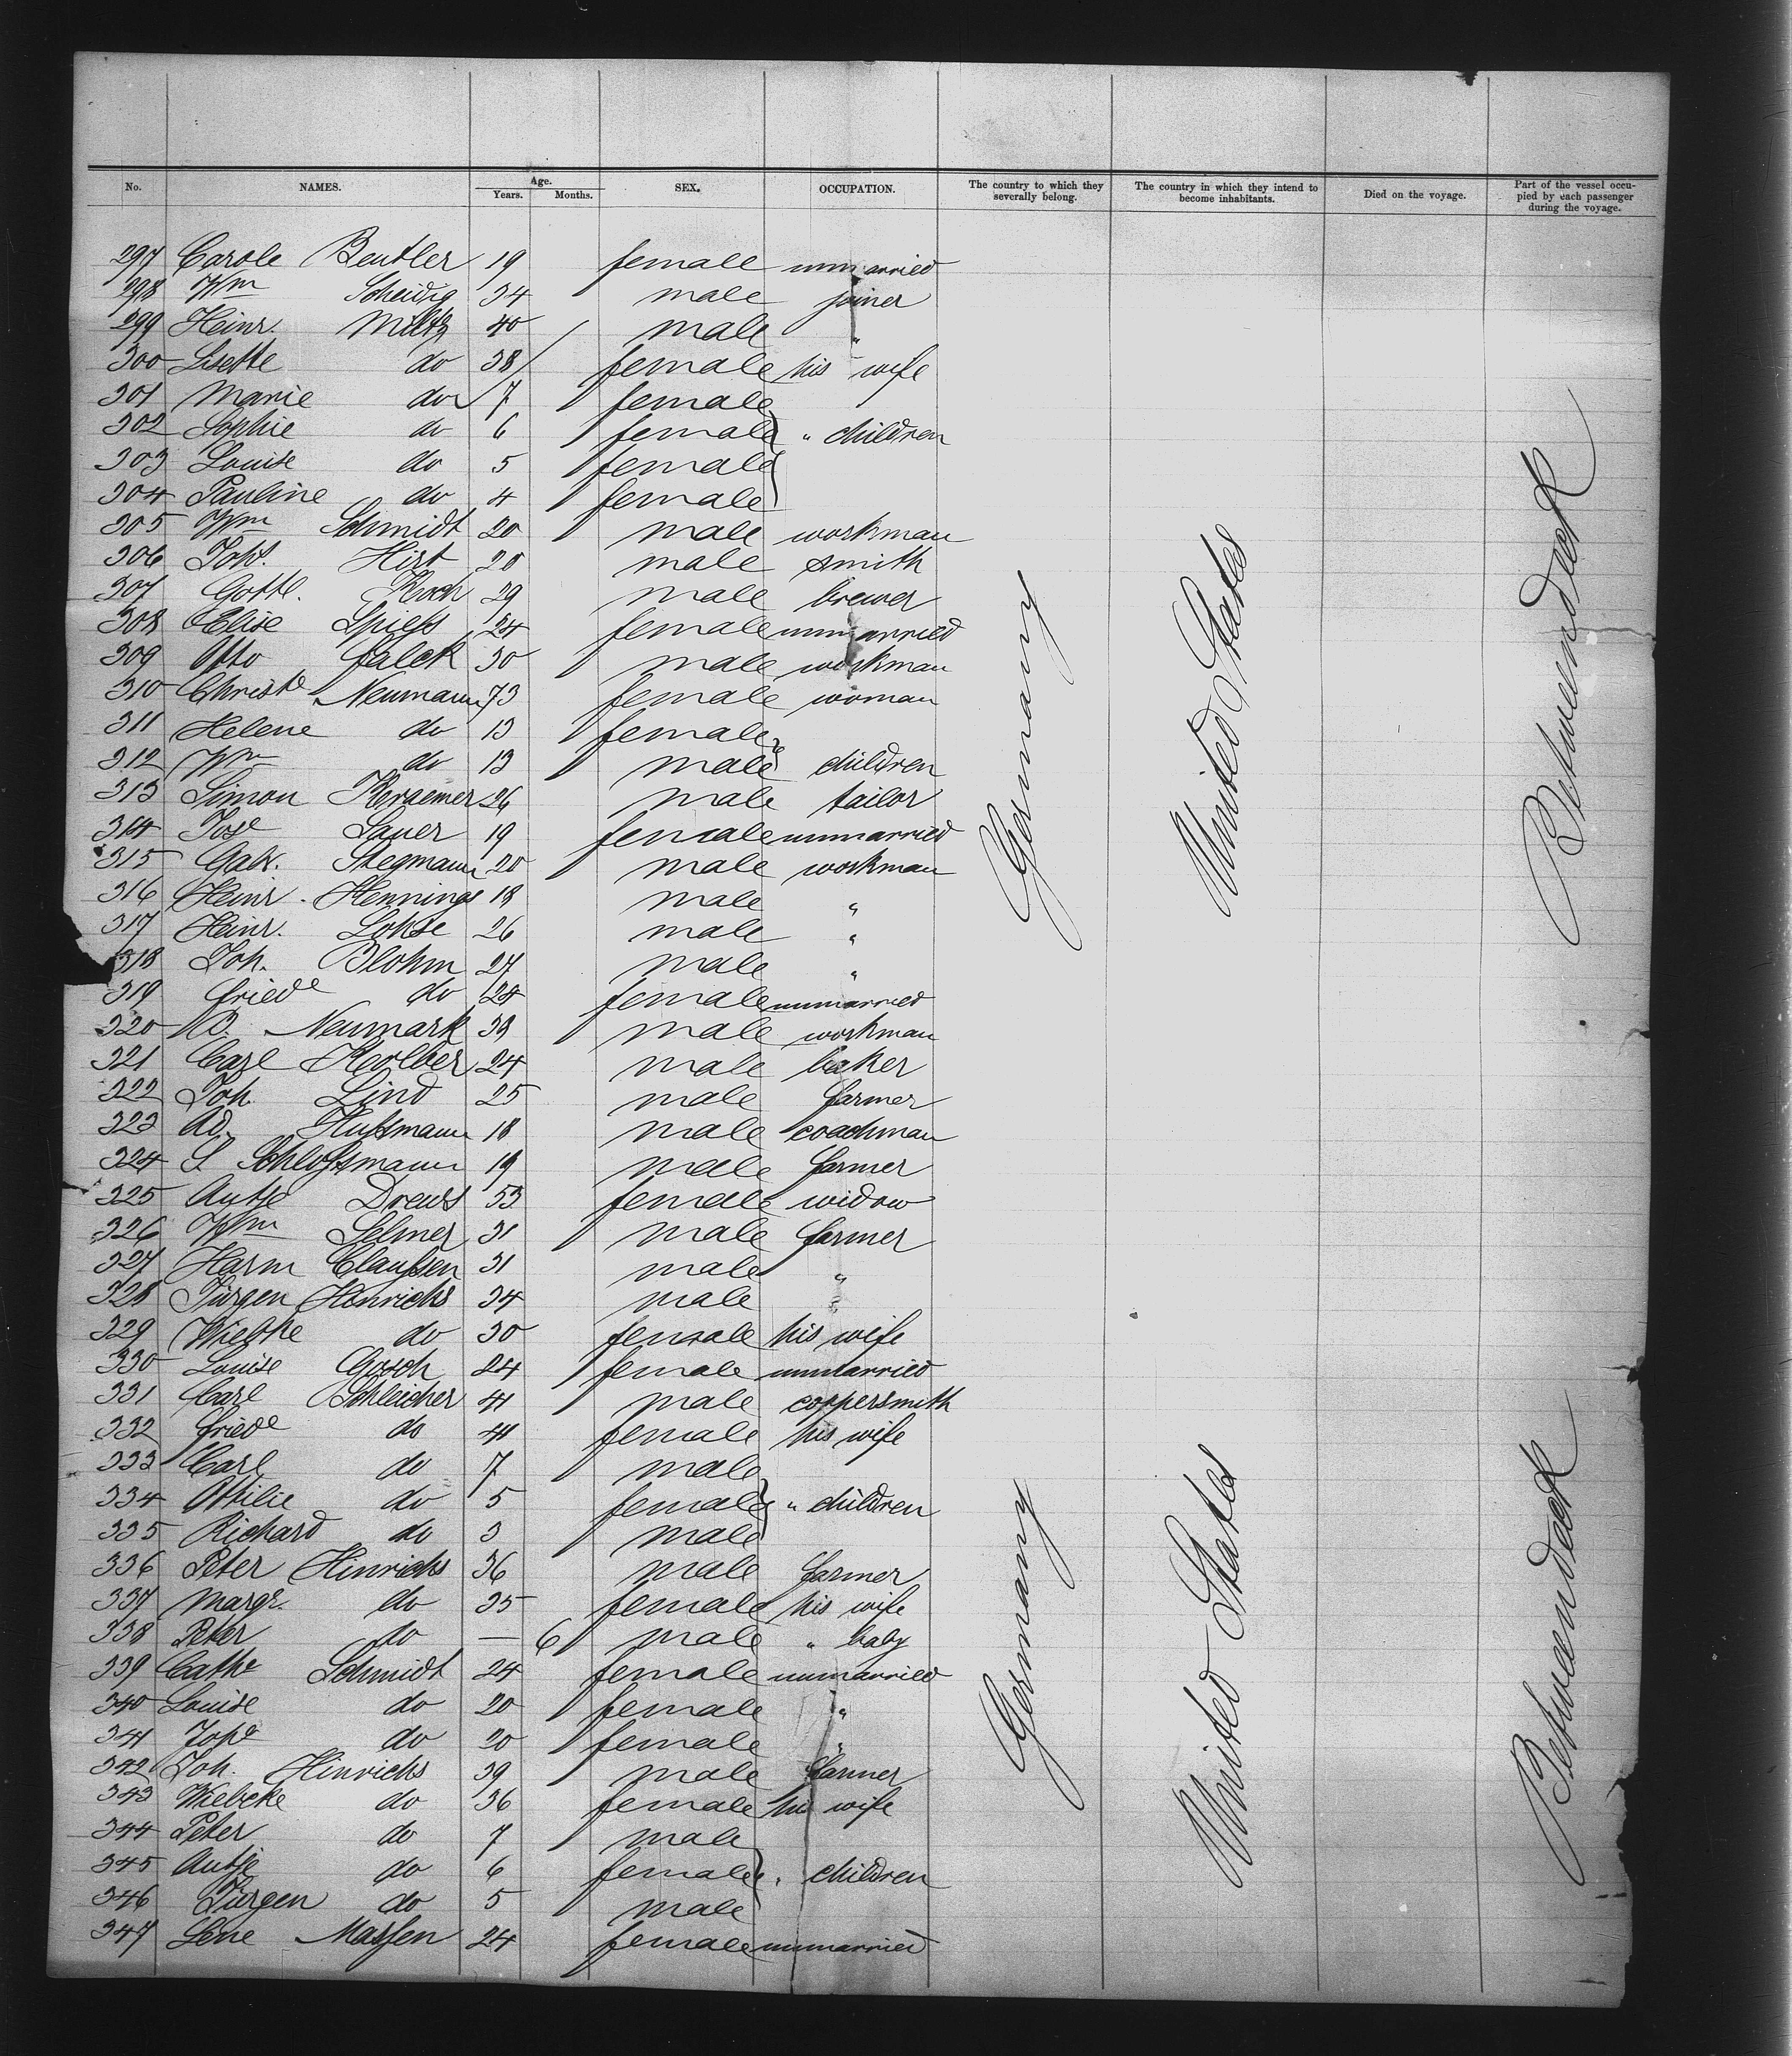 No. NAMES. Age. Years. Months. SEX. OCCUPATION. The country to which they severally belong. The country in which they intend to become inhabitants. Died on the voyage. Part of the vessel occupied by each passenger during the voyage.
297 Carole Beutler 19 female unmarried
298 Wm Scheidig 34 male joiner
299 Heinr. Miltz 40 male "
300 Lisette do 38 female his wife
301 Marie do 7 female
302 Sophie do 6 female " children
303 Louise do 5 female
304 Pauline do 4 female
305 Wm Schmidt 20 male workman
306 Johs. Hirt 20 male smith
307 Gottl. Koch 29 male brewer
308 Elise Spieß 24 female unmarried
309 Otto Falck 30 male workman
310 Christe Neumann 73 female woman
311 Helene do 13 female
312 Wm do 13 male children
313 Simon Kraemer 26 male tailor
314 Jose Sauer 19 female unmarried
315 Gabr. Stegmann 20 male workman
316 Heinr. Hennings 18 male "
317 Heinr. Lohse 26 male "
318 Joh. Blohm 27 male "
319 Friede do 24 female unmarried
320 B. Neumark 33 male workman
321 Carl Kolber 24 male baker
322 Joh. Lind 25 male farmer
323 Ad. Hußmann 18 male coachman
324 S. Schloßmann 19 male farmer
325 Antje Drews 53 female widow
326 Wm Selmer 31 male farmer
327 Harm Claußen 31 male "
328 Jürgen Hinrichs 34 male "
329 Wiebke do 30 female his wife
330 Louise Gosch 24 female unmarried
331 Carl Schleicher 41 male coppersmith
332 Friede do 41 female his wife
333 Carl do 7 male
334 Ottilie do 5 female " children
335 Richard do 3 male
336 Peter Hinrichs 36 male farmer
337 Margr. do 35 female his wife
338 Peter do — 6 male " baby
339 Cathe Schmidt 24 female unmarried
340 Louise do 20 female "
341 Johe do 20 female "
342 Joh. Hinrichs 39 male farmer
343 Wiebcke do 36 female his wife
344 Peter do 7 male
345 Antje do 6 female " children
346 Jürgen do 5 male
347 Lene Maßen 24 female unmarried
Germany
United States
Betweendeck
Germany
United States
Betweendeck